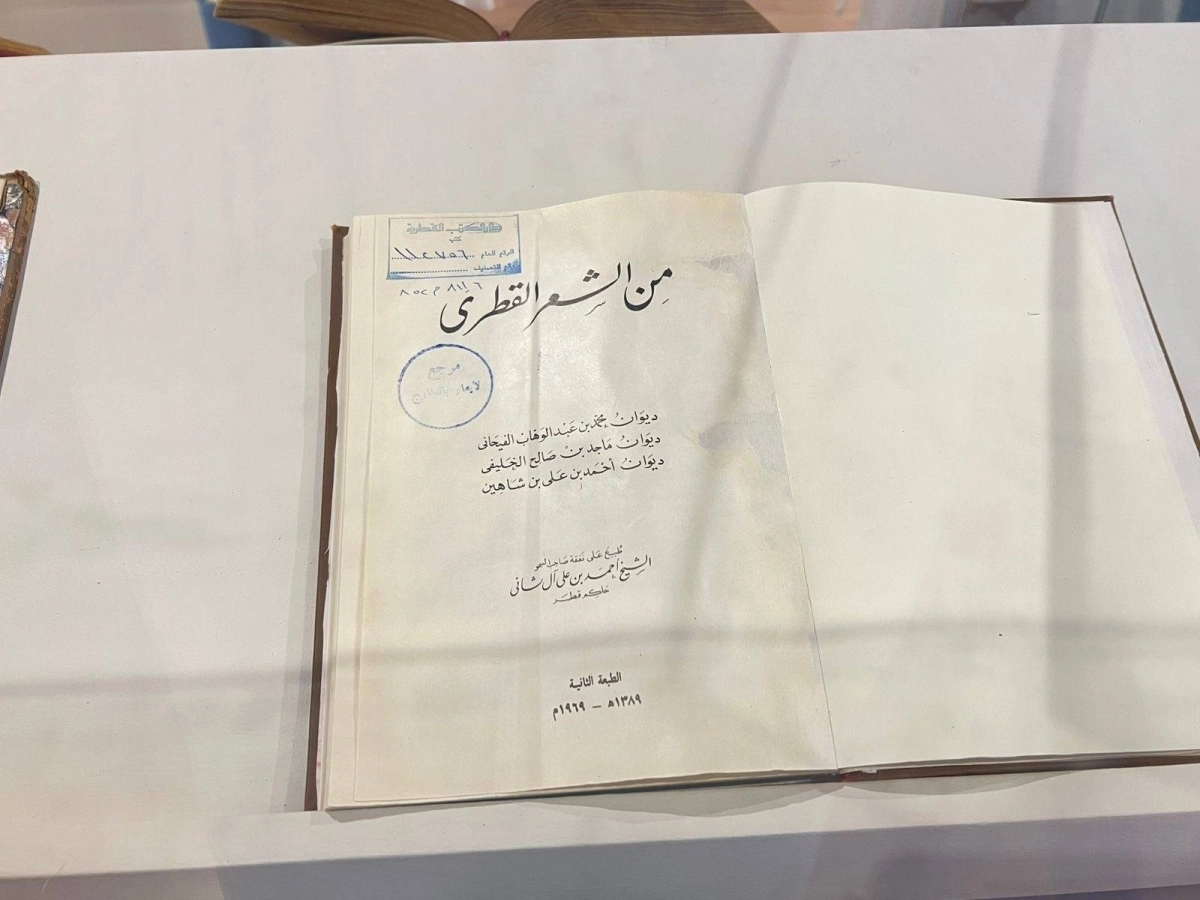 دار الكتب القطرية
كتب
الرقم العام ١١٤٧٥٦
رقم التصنيف
٨١١٫٦ م ٨٥٢
من الشعر القطرى
مرجع
ديوان محمد بن عبد الوهاب الفيحانى
ديوان ماجد بن صالح الخليفى
ديوان أحمد بن على بن شاهين
طبع على نفقة صاحب السمو
الشيخ أحمد بن على آل ثانى
حاكم قطر
الطبعة الثانية
١٣٨٩ه - ١٩٦٩م